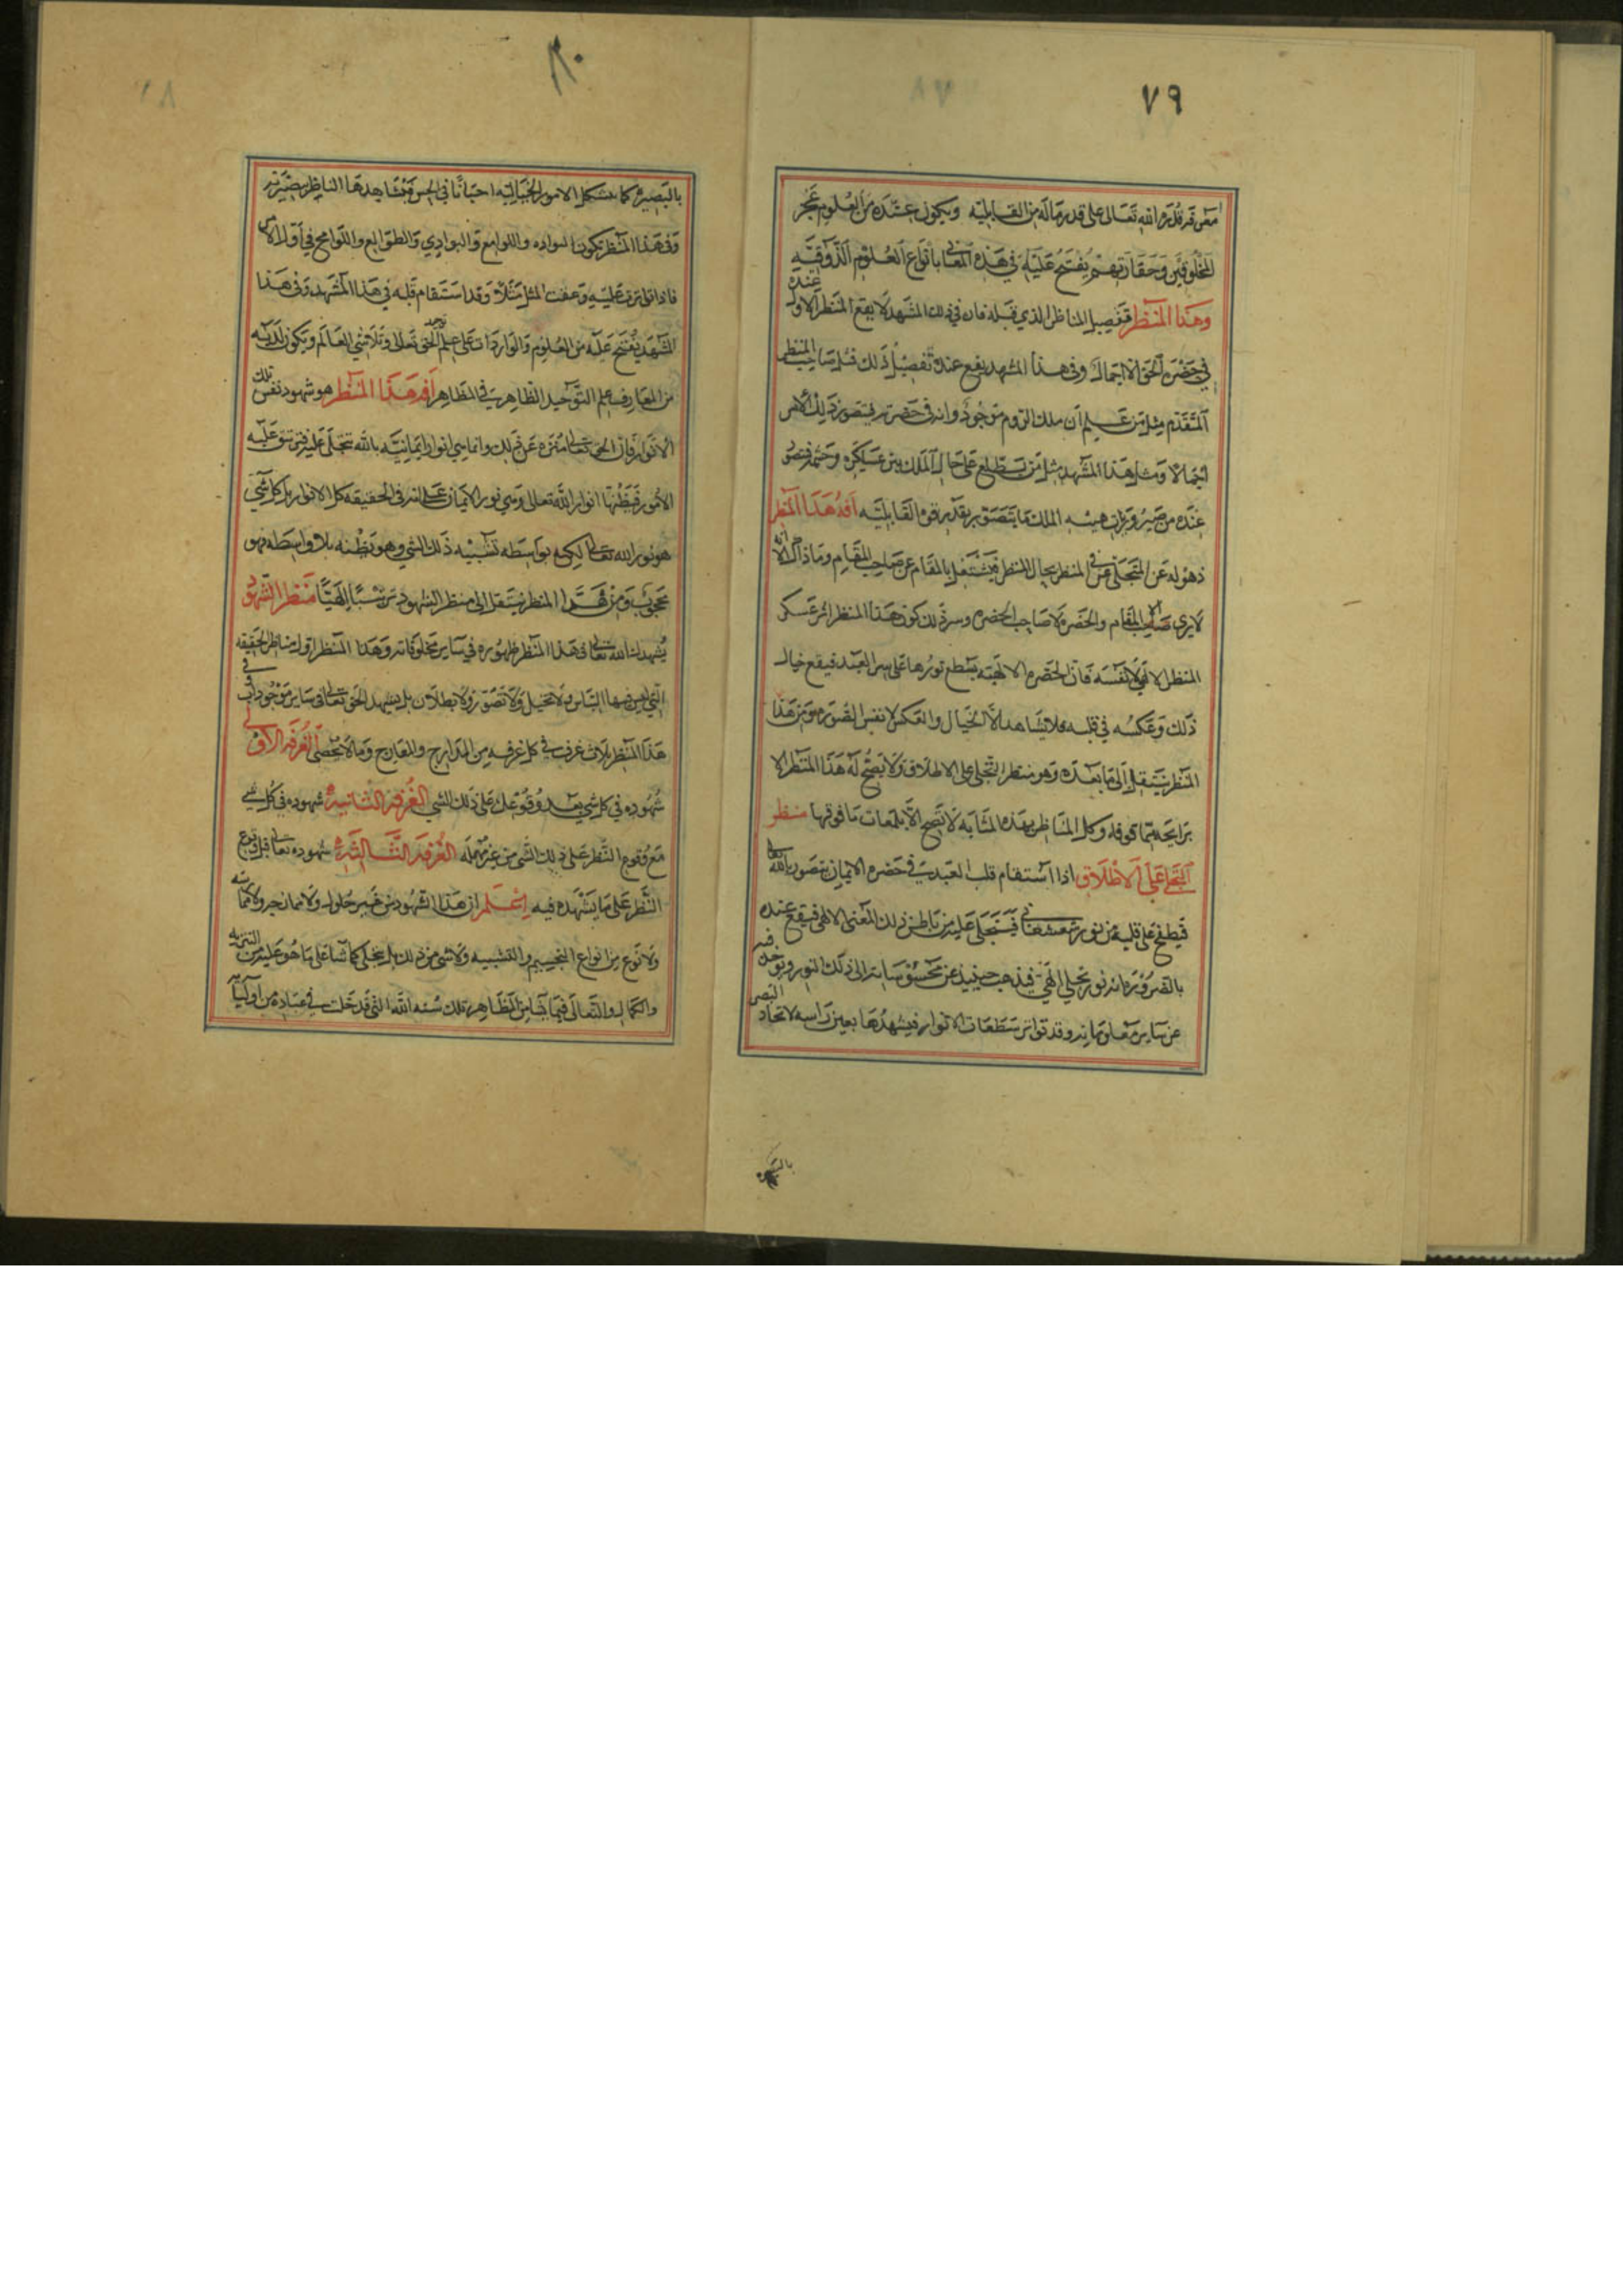 ٧٩
معرفة قدرة الله تعالى على قدر ماله من القابليه ويكون عنده من العلوم عجز
المخلوقين وحقارتهم يفتح عليه في هذه المعاني بأنواع العلوم الذوقيه
وهذا المنظر تفصيل المناظر الذي قبله فان في ذلك المشهد لا يقع المنظر الاول عنده
في حضرة الحق الا اجمالا وفي هذا المشهد يقع عنده تفصيل ذلك فمثل صاحب المنظر
المتقدم مثل من علم ان ملك الروم موجود وانه في حضرته يتصور ذلك الامر
اجمالا ومثل هذا المشهد مثل من يطلع على حال الملك بين عسكره وحشمه فيتصور
عنده من هيبه الملك ما يتصور بقدر قوه القابليه افه هذا المنظر
ذهوله عن المتجلي في المنظر بحال المنظر فيشتغل بالمقام عن صاحب المقام وماذاك الا انه
لا يرى صاحب المقام والحضره لا صاحب الحضره وسر ذلك كون هذا المنظر اثر عكس
المنظر الالهي لا نفسه فان الحضره الالهيه يسطع نورها على سر العبد فيقع خيال
ذلك وعكسه في قلبه فلا يشاهد الا الخيال والعكس لا نفس الصوره ومن هذا
المنظر ينتقل الى ما بعده وهو منظر التجلي على الاطلاق ولا يصح له هذا المنظر الا
برايحه مما فوقه وكل المناظر بهذه المثابه لا تصح الا بلمعات ما فوقها منظر
التجلي على الاطلاق اذا استقام قلب العبد في حضره الايمان بتصور بالله تعالى
فيطفح على قلبه من نور شعشعاني فيتجلى عليه من باطن ذلك المعنى الالهي فيقع عنده
بالضروره انه نور تجلي الهي فيذهب حينيذ عن محسوساته الى ذلك النور ويوخذ فيه
عن ساير معلوماته وقد تواتر سطعات الانوار فيشهدها بعين راسه لاتحاد البصر
بالبصيره
٨٠
بالبصيره كما تتشكل الامور الخياليه احيانا في الحس فيشاهدها الناظر ببصيرته
وفي هذا المنظر تكون البواده واللوامع والبوادي والطوالع واللوامح في اول الامر
فاذا توالت عليه وعفت المثل مثلا وقد استقام قلبه في هذا المشهد وفي هذا
المشهد يفتح عليه من العلوم والواردات على علم الحق تعالى وتلاشي العالم ويكون لديه
من المعارف علم التوحيد الظاهر في المظاهر افه هذا المنظر هو شهود نفس تلك
الانوار فان الحق تعالى منزه عن ذلك وانما هي انوار ايمانيه بالله تتجلى عليه فتتنوع عليه
الامور فيظنها انوار الله تعالى وهي نور الايمان على انه في الحقيقه كل الانوار بل كل شي
هو نور الله تعالى لكنه بواسطه تشبيه ذلك الشي وهو يظنه بلا واسطه فهو
محجوب ومن هذا المنظر ينتقل الى منظر الشهود ترتيبا الهيا منظر الشهود
يشهدك الله تعالى في هذا المنظر ظهوره في ساير مخلوقاته وهذا المنظر اول مناظر الحقيقه
التي ليس فيها التباس ولا تخيل ولا تصور ولا بطلان بل يشهد الحق تعالى في ساير موجوداته في
هذا المنظر ثلاث غرف في كل غرفه من المدارج والمعارج وما لا يحصى الغرفه الاولى
شهوده في كل شي بعد وقوع علمه على ذلك الشي الغرفه الثانيه شهوده في كل شي
مع وقوع النظر على ذلك الشي من غير مهله الغرفه الثالثه شهوده تعالى قبل وقوع
النظر على ما يشهده فيه اعلم ان هذا الشهود من غير حلول ولا ممازجه ولا مماسه
ولا نوع من انواع التجسيم والتشبيه ولا شي من ذلك بل يتجلى كما شا على ما هو عليه من التنزيه
والكمال والتعالى فيما يشا من المظاهر تلك سنه الله التي قد خلت في عباده من اوليايه